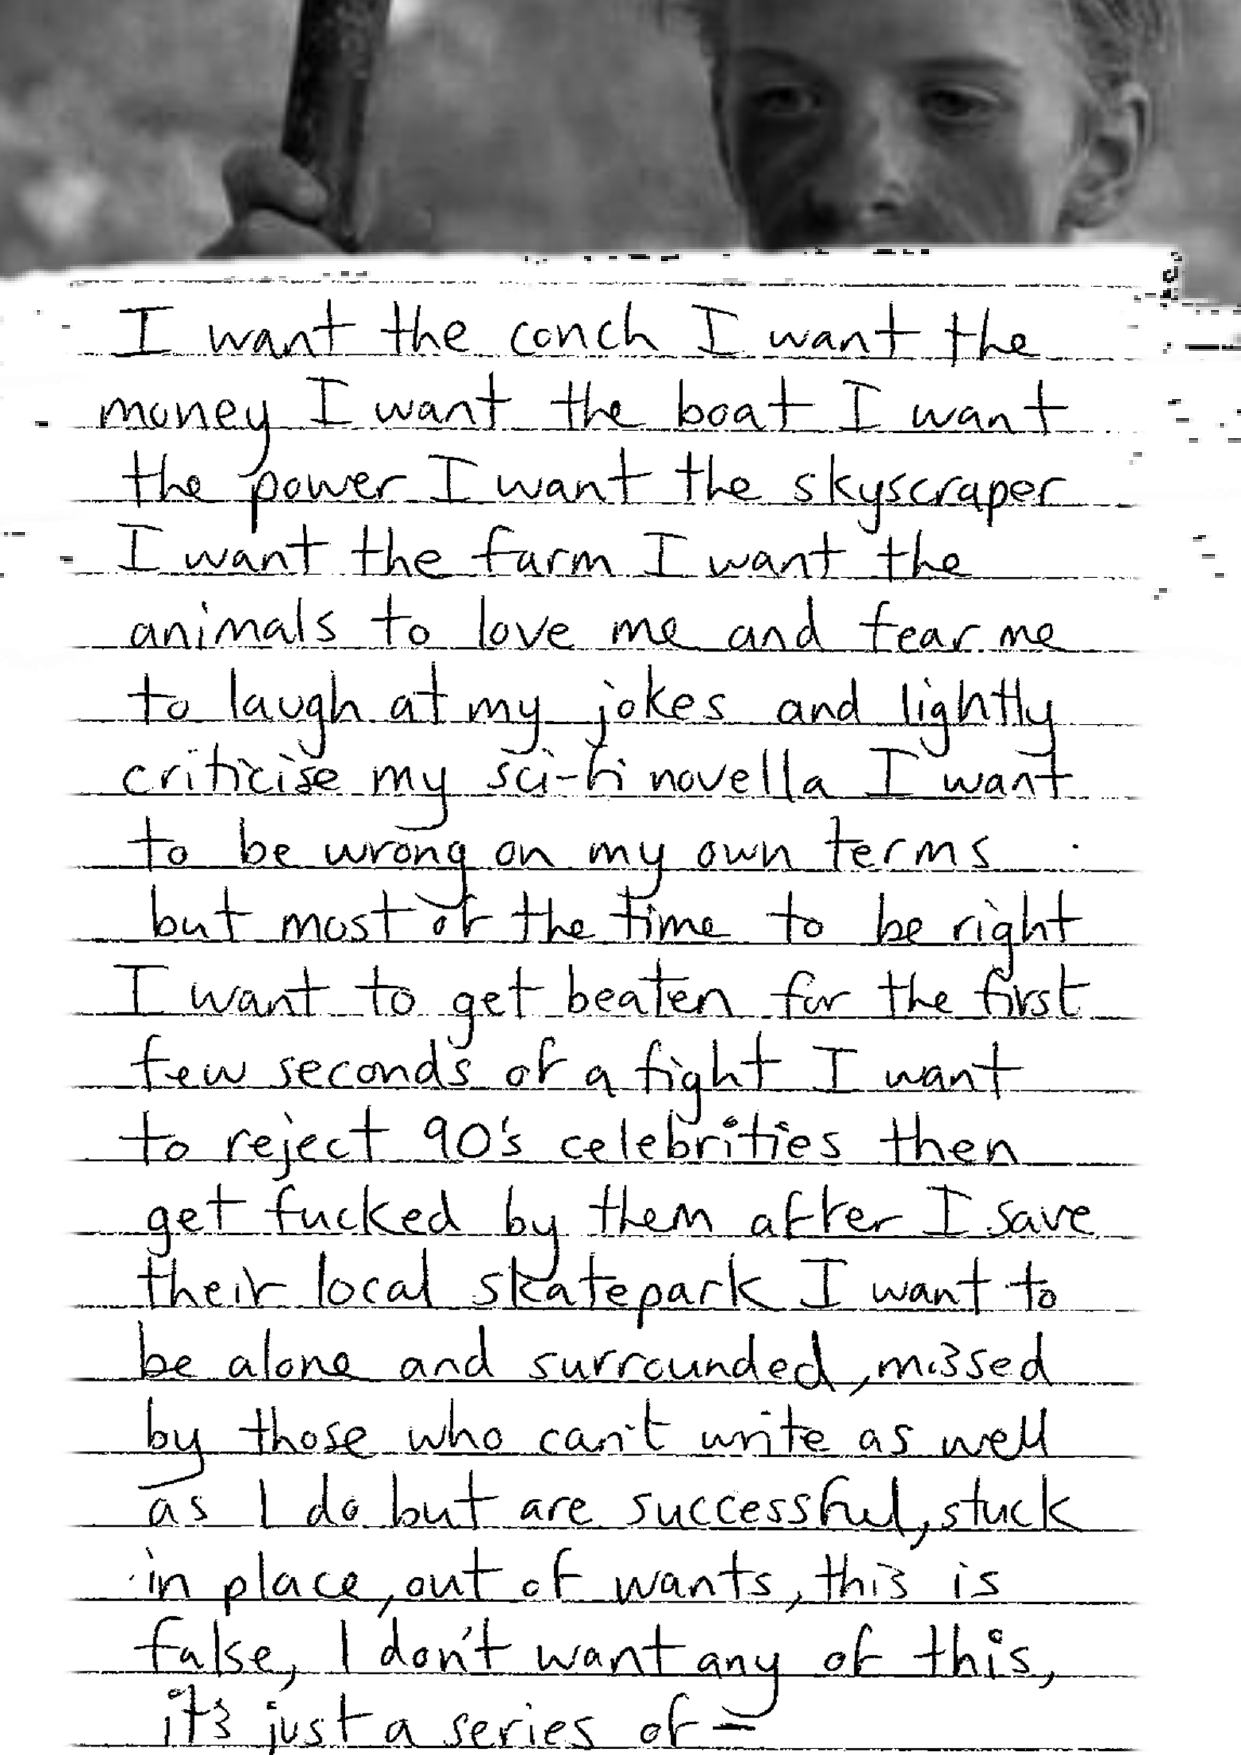 I want the conch I want the
money I want the boat I want
the power I want the skyscraper
I want the farm I want the
animals to love me and fear me
to laugh at my jokes and lightly
criticise my sci-fi novella I want
to be wrong on my own terms
but most of the time to be right
I want to get beaten for the first
few seconds of a fight I want
to reject 90's celebrities then
get fucked by them after I save
their local skatepark I want to
be alone and surrounded, missed
by those who can't write as well
as I do but are successful, stuck
in place, out of wants, this is
false, I don't want any of this,
it's just a series of –